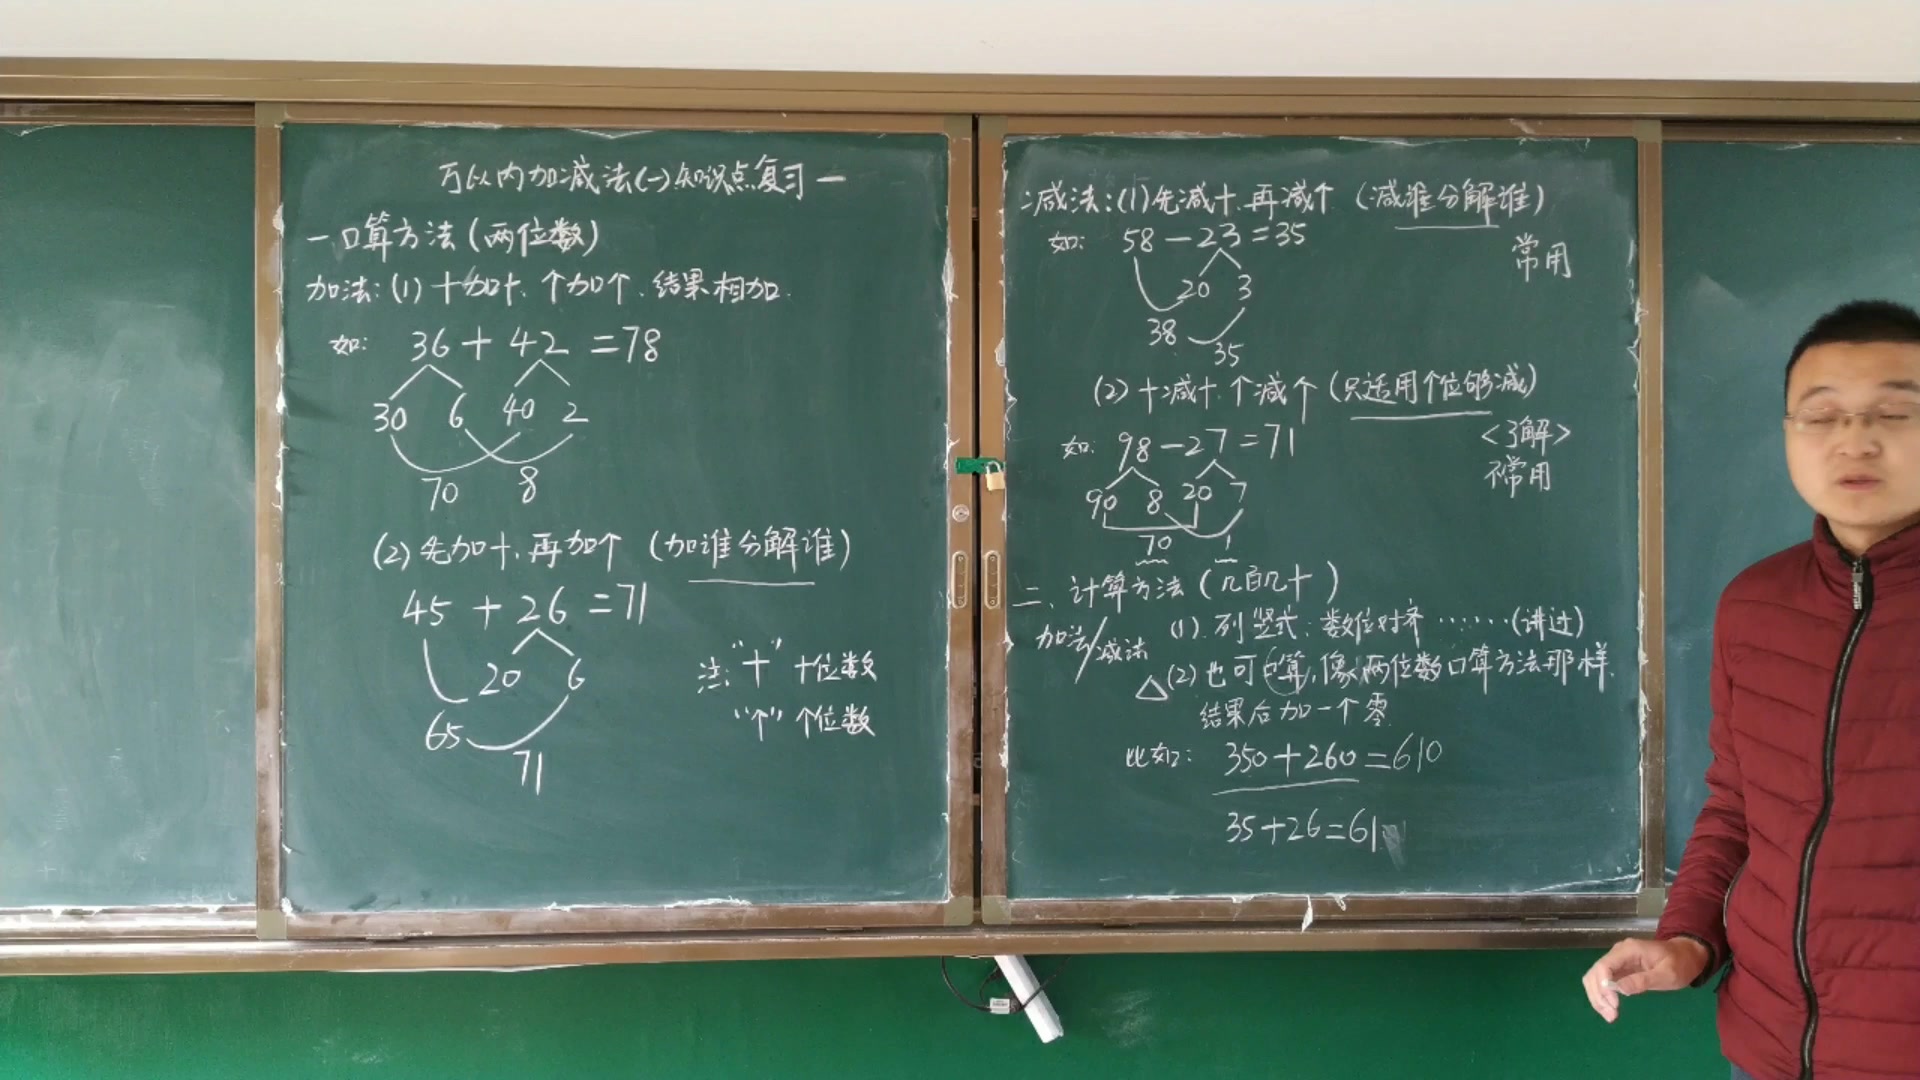 万以内加减法(一)知识点复习一
一 口算方法(两位数)
加法:(1)十加十、个加个、结果相加.
如: 36+42=78
30 6 40 2
70 8
(2)先加十、再加个(加谁分解谁)
45+26=71
20 6
65
71
注:"十"十位数
"个"个位数
减法:(1)先减十、再减个(减谁分解谁)
如: 58-23=35
常用
20 3
38
35
(2)十减十、个减个(只适用个位够减)
如: 98-27=71
<了解>
不常用
90 8 20 7
70 1
二、计算方法(几百几十)
加法/减法
(1).列竖式:数位对齐……(讲过)
△(2)也可口算,像两位数口算方法那样,
结果后加一个零.
比如: 350+260=610
35+26=61